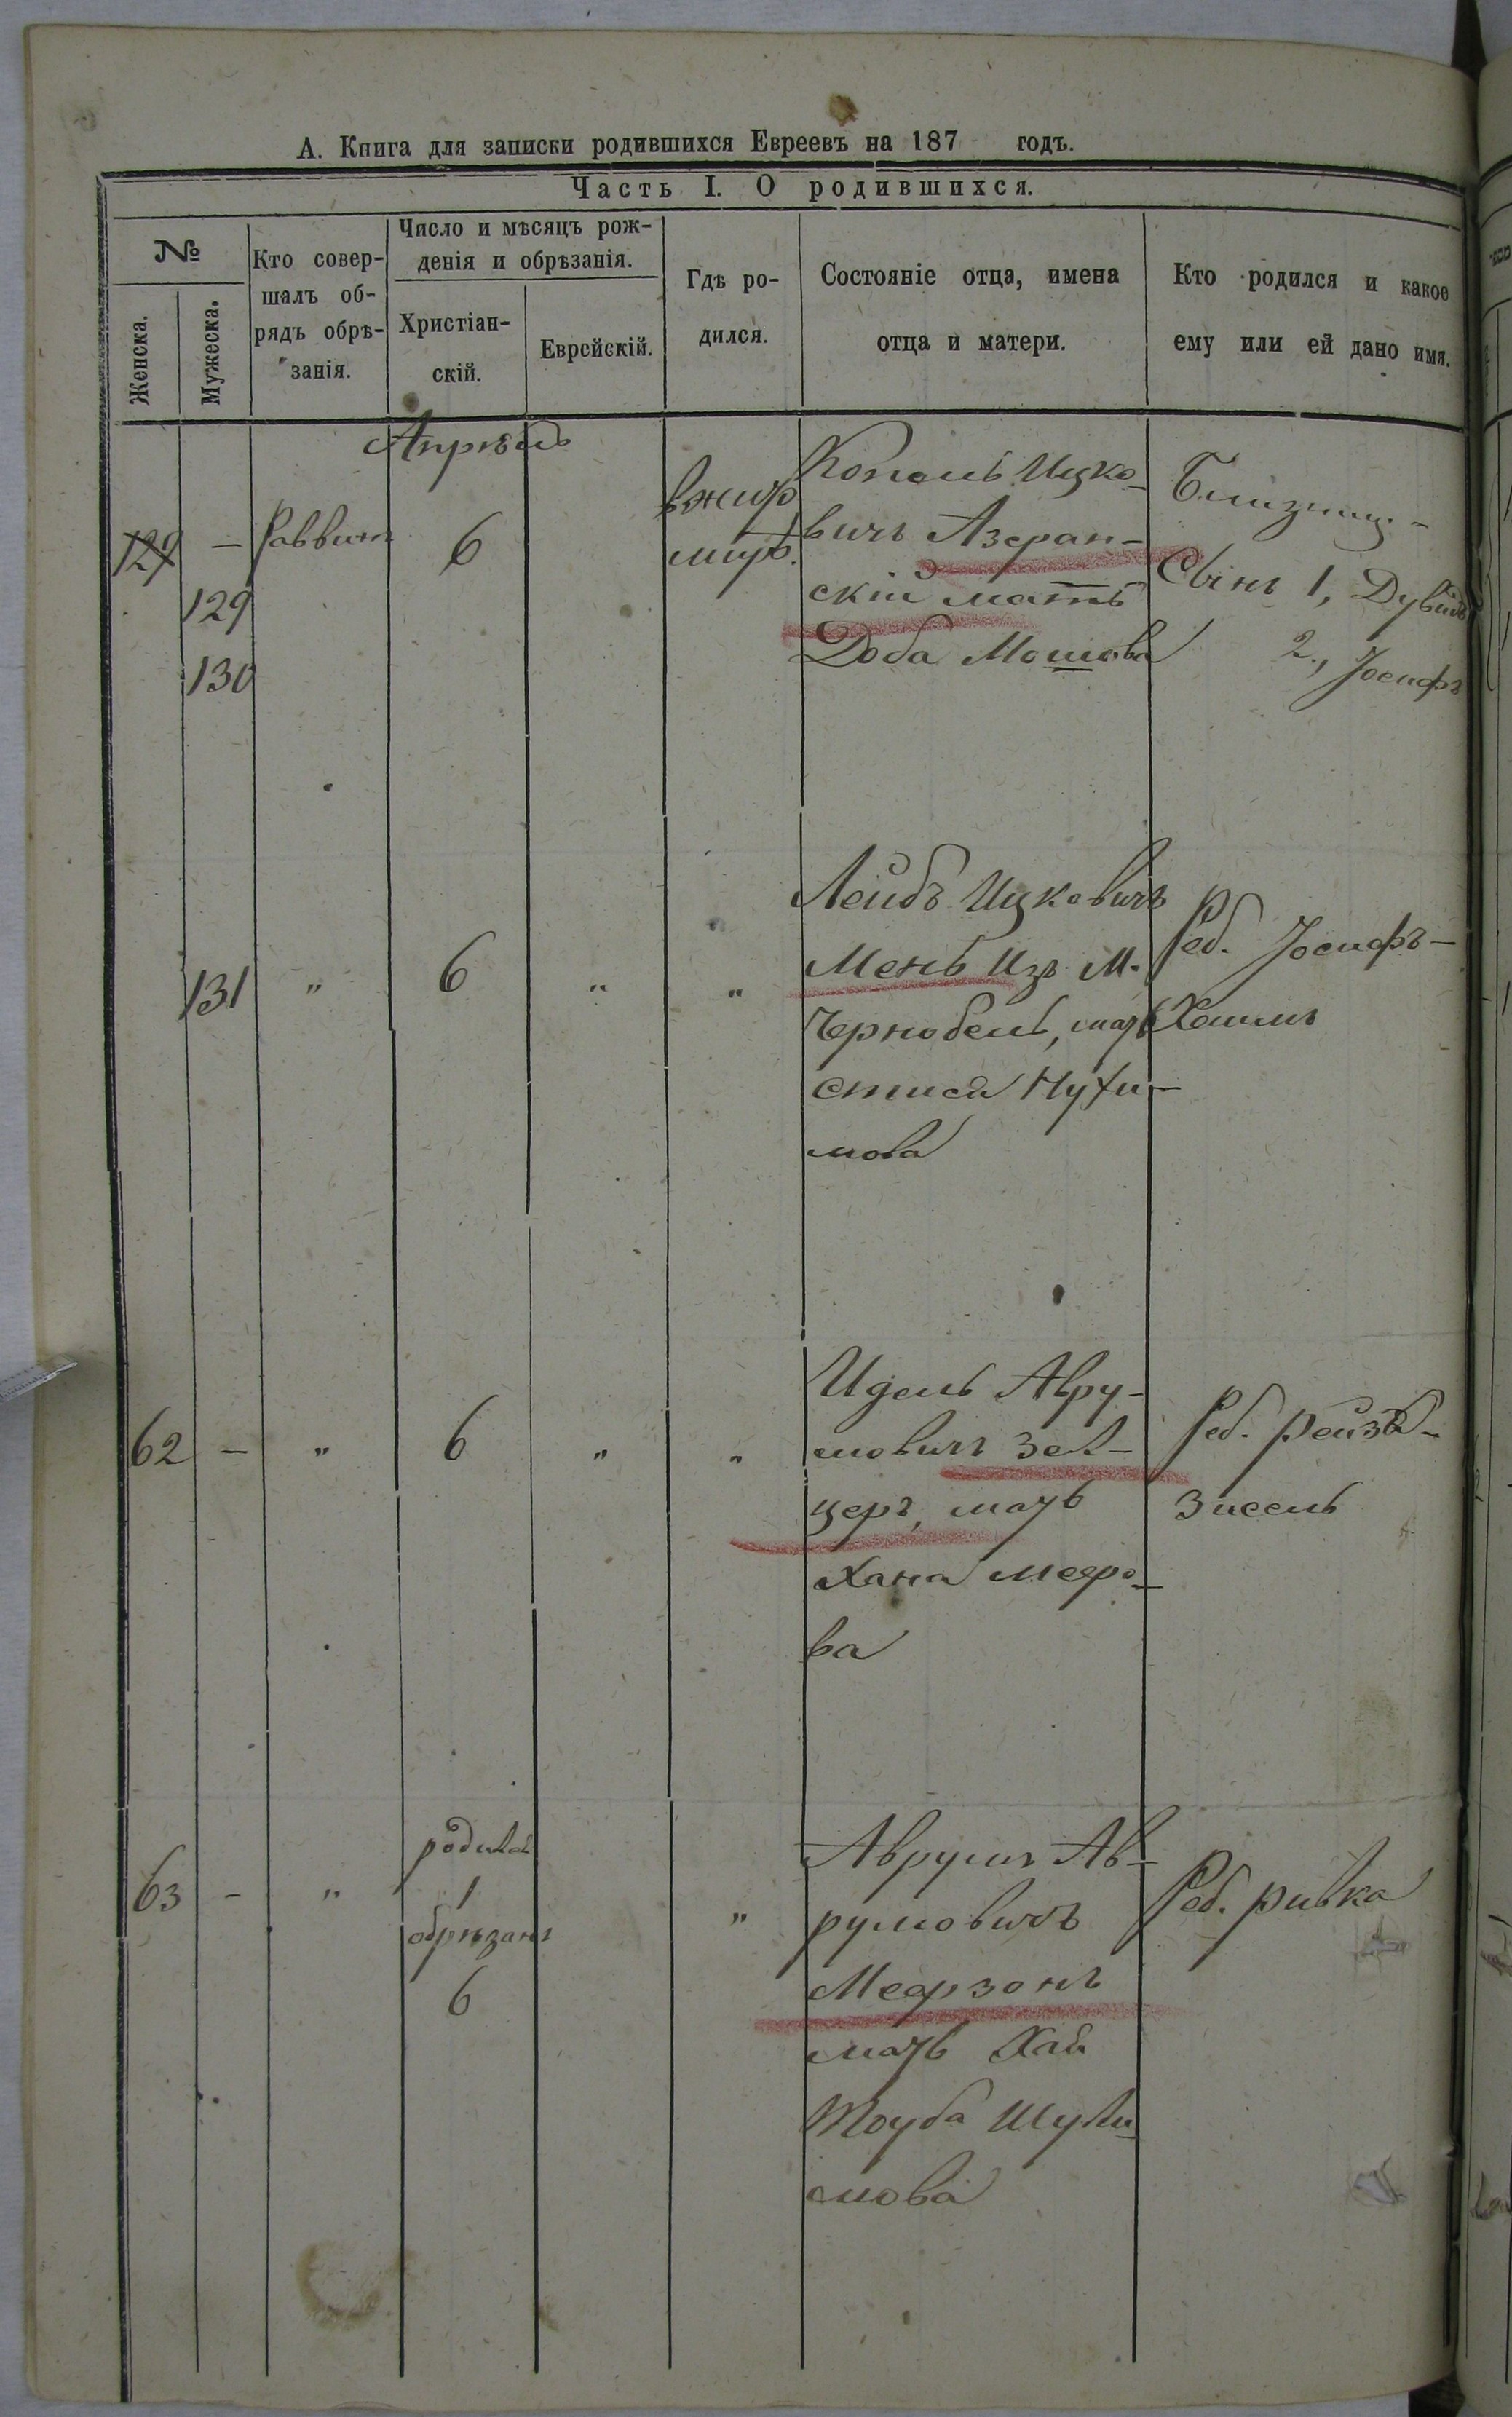 А. Книга для записки родившихся Евреевъ на 187 годъ.
Часть I. О родившихся.
№
Женска.
Мужеска.
Кто совер-
шалъ об-
рядъ обрѣ-
занія.
Число и мѣсяцъ рож-
денія и обрѣзанія.
Христіан-
скій.
Еврейскій.
Гдѣ ро-
дился.
Состояніе отца, имена
отца и матери.
Кто родился и какое
ему или ей дано имя.
Апрѣль
129 — Раввинъ 6
129
130
Копель Ицко-
вичъ Азеран-
скій мать
Доба Мошкова
Близнец-
1, Дувидъ
2, Іосифъ
131 " 6 " "
Лейбъ Ицковичъ
Мень Изъ М.
Чернобель, мать
Нухи-
мова
Реб. Іосифъ-
Хаимъ
62 — " 6 " "
Идель Авру-
мовичъ Зел-
церъ, мать
Хана Мееро-
ва
Реб. Рейзя-
Зисель
63 - "
родилась
1
обрѣзанъ
6
"
Аврумъ Ав-
румовичъ
Меерзонъ
мать Хая
Тауба Шули-
мова
Реб. Ривка